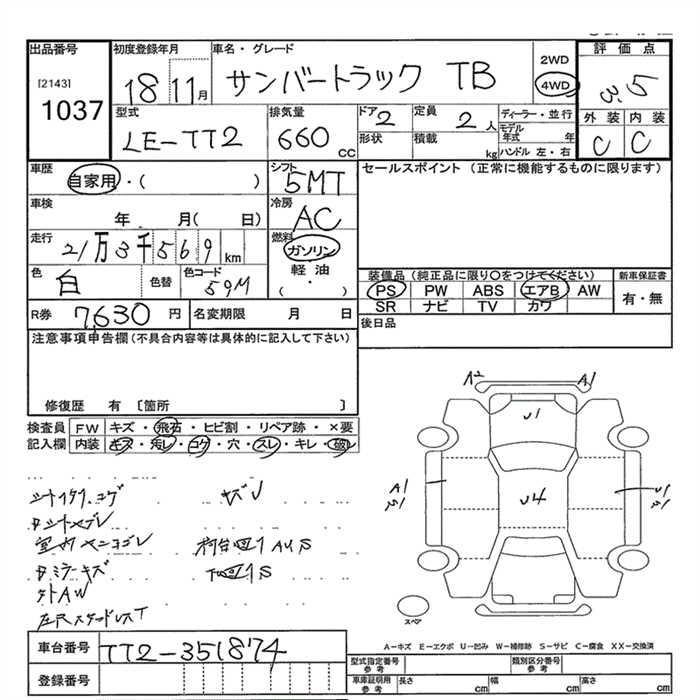 出品番号 初度登録年月 車名・グレード 評価点
[2143] 18 11月 サンバートラック TB 2WD 4WD 3.5
1037
型式 排気量 ドア 定員 ディーラー・並行 外装 内装
LE-TT2 660 CC 2 2人 モデル年式 年 C C
形状 積載 kg ハンドル 左・右
車歴 シフト セールスポイント (正常に機能するものに限ります)
自家用・( ) 5MT
車検 冷房
年 月( 日) AC
走行 燃料
21万3千569km ガソリン
色 色替 色コード 軽油
白 59M (・)
装備品 (純正品に限り○をつけてください) 新車保証書
PS PW ABS エアB AW 有・無
SR ナビ TV カワ
R券 7,630円 名変期限 月 日
後日品
注意事項申告欄(不具合内容等は具体的に記入して下さい)
修復歴 有 〔箇所 〕
検査員 FW キズ・飛石・ヒビ割・リペア跡・×要
記入欄 内装 キズ・汚レ・コゲ・穴・スレ・キレ・破レ
A2 A1
U1
A1
S1
U4
U1
S1
スペア
外AW
車台番号 TT2-351874
A－キズ E－エクボ U－凹み W－補修跡 S－サビ C－腐食 XX－交換済
型式指定番号 参考 類別区分番号 参考
登録番号
車庫証明用 参考 長さ cm 幅 cm 高さ cm